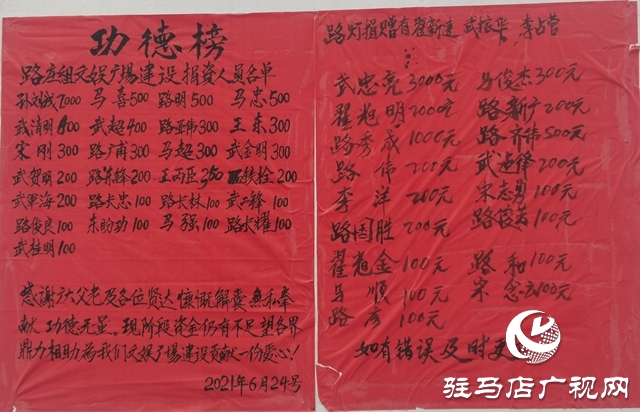 功德榜
路庄组文娱广场建设捐资人员名单
孙刘成7000 马喜500 路明500 马忠500
武清明500 武超400 路亚伟300 王东300
宋刚300 路广甫300 马超300 武金明300
武贺明200 路东锋200 王丙臣350 铁拴200
武军海200 路长忠100 路长林100 武二锋100
路俊良100 东盼功100 马强100 路长耀100
武桂明100
感谢广大父老及各位贤达慷慨解囊无私奉
献功德无量。现阶段资金仍有不足望各界
鼎力相助为我们文娱广场建设贡献一份爱心!
2021年6月24号
路灯捐赠有翟新连 武振华 李占营
武忠亮3000元 马俊杰300元
翟旭明2000元 路新广200元
路秀成1000元 路齐伟500元
路伟200元 武进锋200元
李洋200元 宋志勇100元
路国胜200元 路官英100元
翟省金100元 路和100元
马顺100元 宋念云100元
路彦100元
如有错误及时更
驻马店广视网